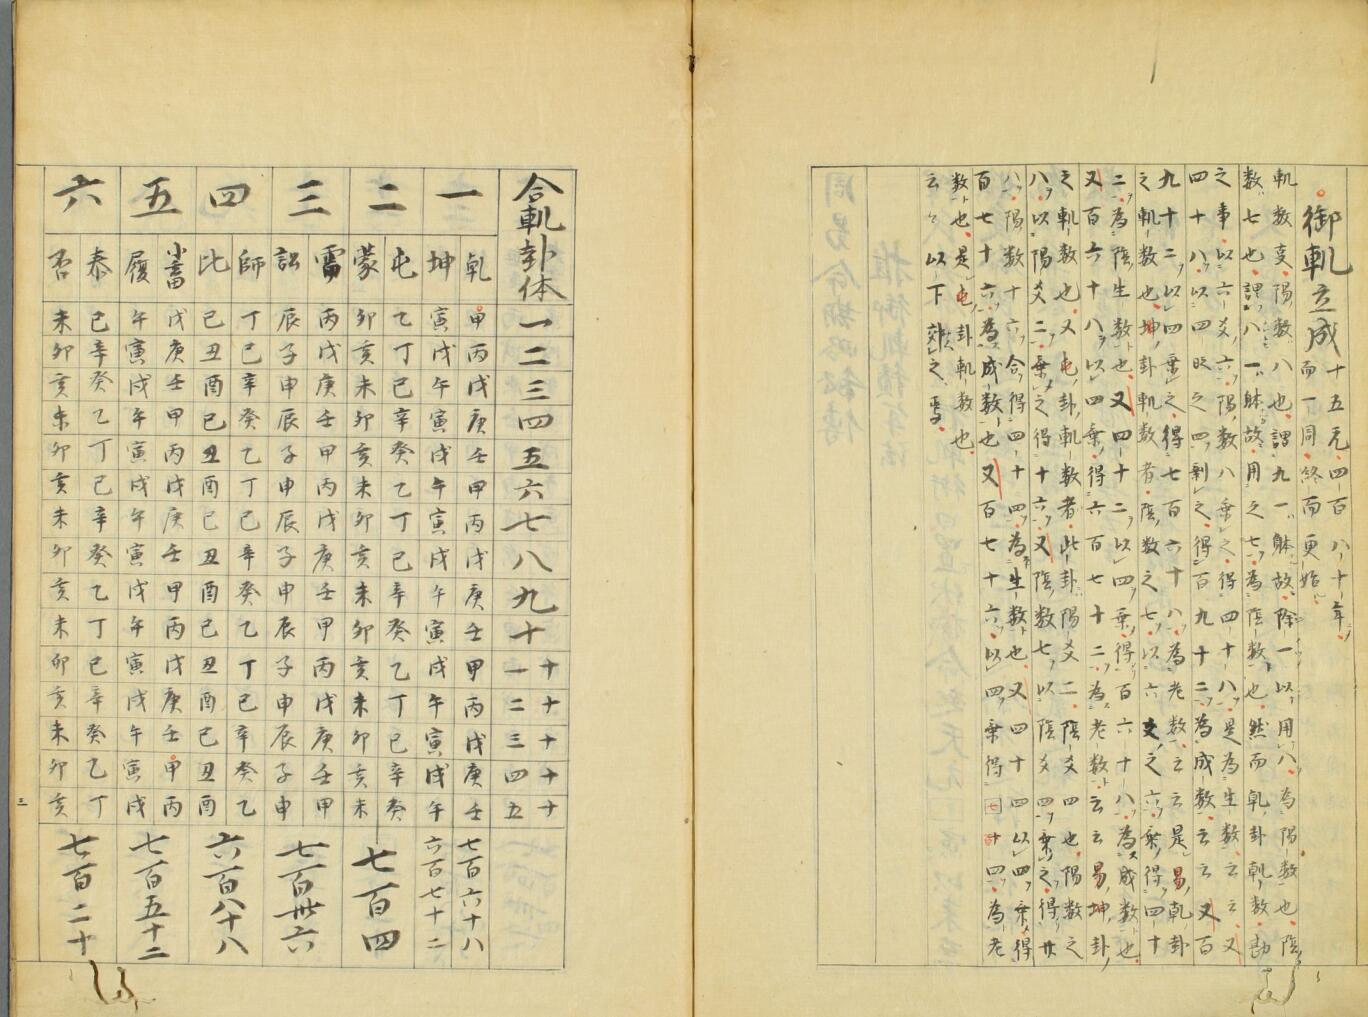 御軌立成 十五元四百八十年
而一同終而更始
軌数受陽数八也謂九一躰故除一以用八為陽数也陰
数七也謂八一躰故用之七為陰数也然而乹卦軌数勘
之事以六爻六陽数八乗之得四十八是為生数云云又
四十八以四時之四剰之得百九十二為成数云云又百
九十二以四乗之得七百六十八為老数云云是易乹卦
之軌数也坤卦軌数者陰数之七以六爻之六乗得四十
二為陰生数也又四十二以四乗得百六十八為成数也
又百六十八以四乗得六百七十二為老数云云易坤卦
之軌数也又屯卦軌数者此卦陽爻二陰爻四也陽数之
八以陽爻二乗之得十六又陰数七以陰爻四乗之得廿
八陽数十六合得四十四為生数也又四十四以四乗得
百七十六為成数也又百七十六以四乗得七十四為老
数也是屯卦軌数也
云々以下效之焉
合軌卦体 一 二 三 四 五 六 七 八 九 十 十一 十二 十三 十四 十五
一
乹 甲 丙 戊 庚 壬 甲 丙 戊 庚 壬 甲 丙 戊 庚 壬 七百六十八
坤 寅 戌 午 寅 戌 午 寅 戌 午 寅 戌 午 寅 戌 午 六百七十二
二
屯 乙 丁 己 辛 癸 乙 丁 己 辛 癸 乙 丁 己 辛 癸
蒙 卯 亥 未 卯 亥 未 卯 亥 未 卯 亥 未 卯 亥 未
七百四
三
需 丙 戊 庚 壬 甲 丙 戊 庚 壬 甲 丙 戊 庚 壬 甲
訟 辰 子 申 辰 子 申 辰 子 申 辰 子 申 辰 子 申
七百卅六
四
師 丁 己 辛 癸 乙 丁 己 辛 癸 乙 丁 己 辛 癸 乙
比 巳 丑 酉 巳 丑 酉 巳 丑 酉 巳 丑 酉 巳 丑 酉
六百八十八
五
小畜 戊 庚 壬 甲 丙 戊 庚 壬 甲 丙 戊 庚 壬 甲 丙
履 午 寅 戌 午 寅 戌 午 寅 戌 午 寅 戌 午 寅 戌
七百五十二
六
泰 己 辛 癸 乙 丁 己 辛 癸 乙 丁 己 辛 癸 乙 丁
否 未 卯 亥 未 卯 亥 未 卯 亥 未 卯 亥 未 卯 亥
七百二十
三